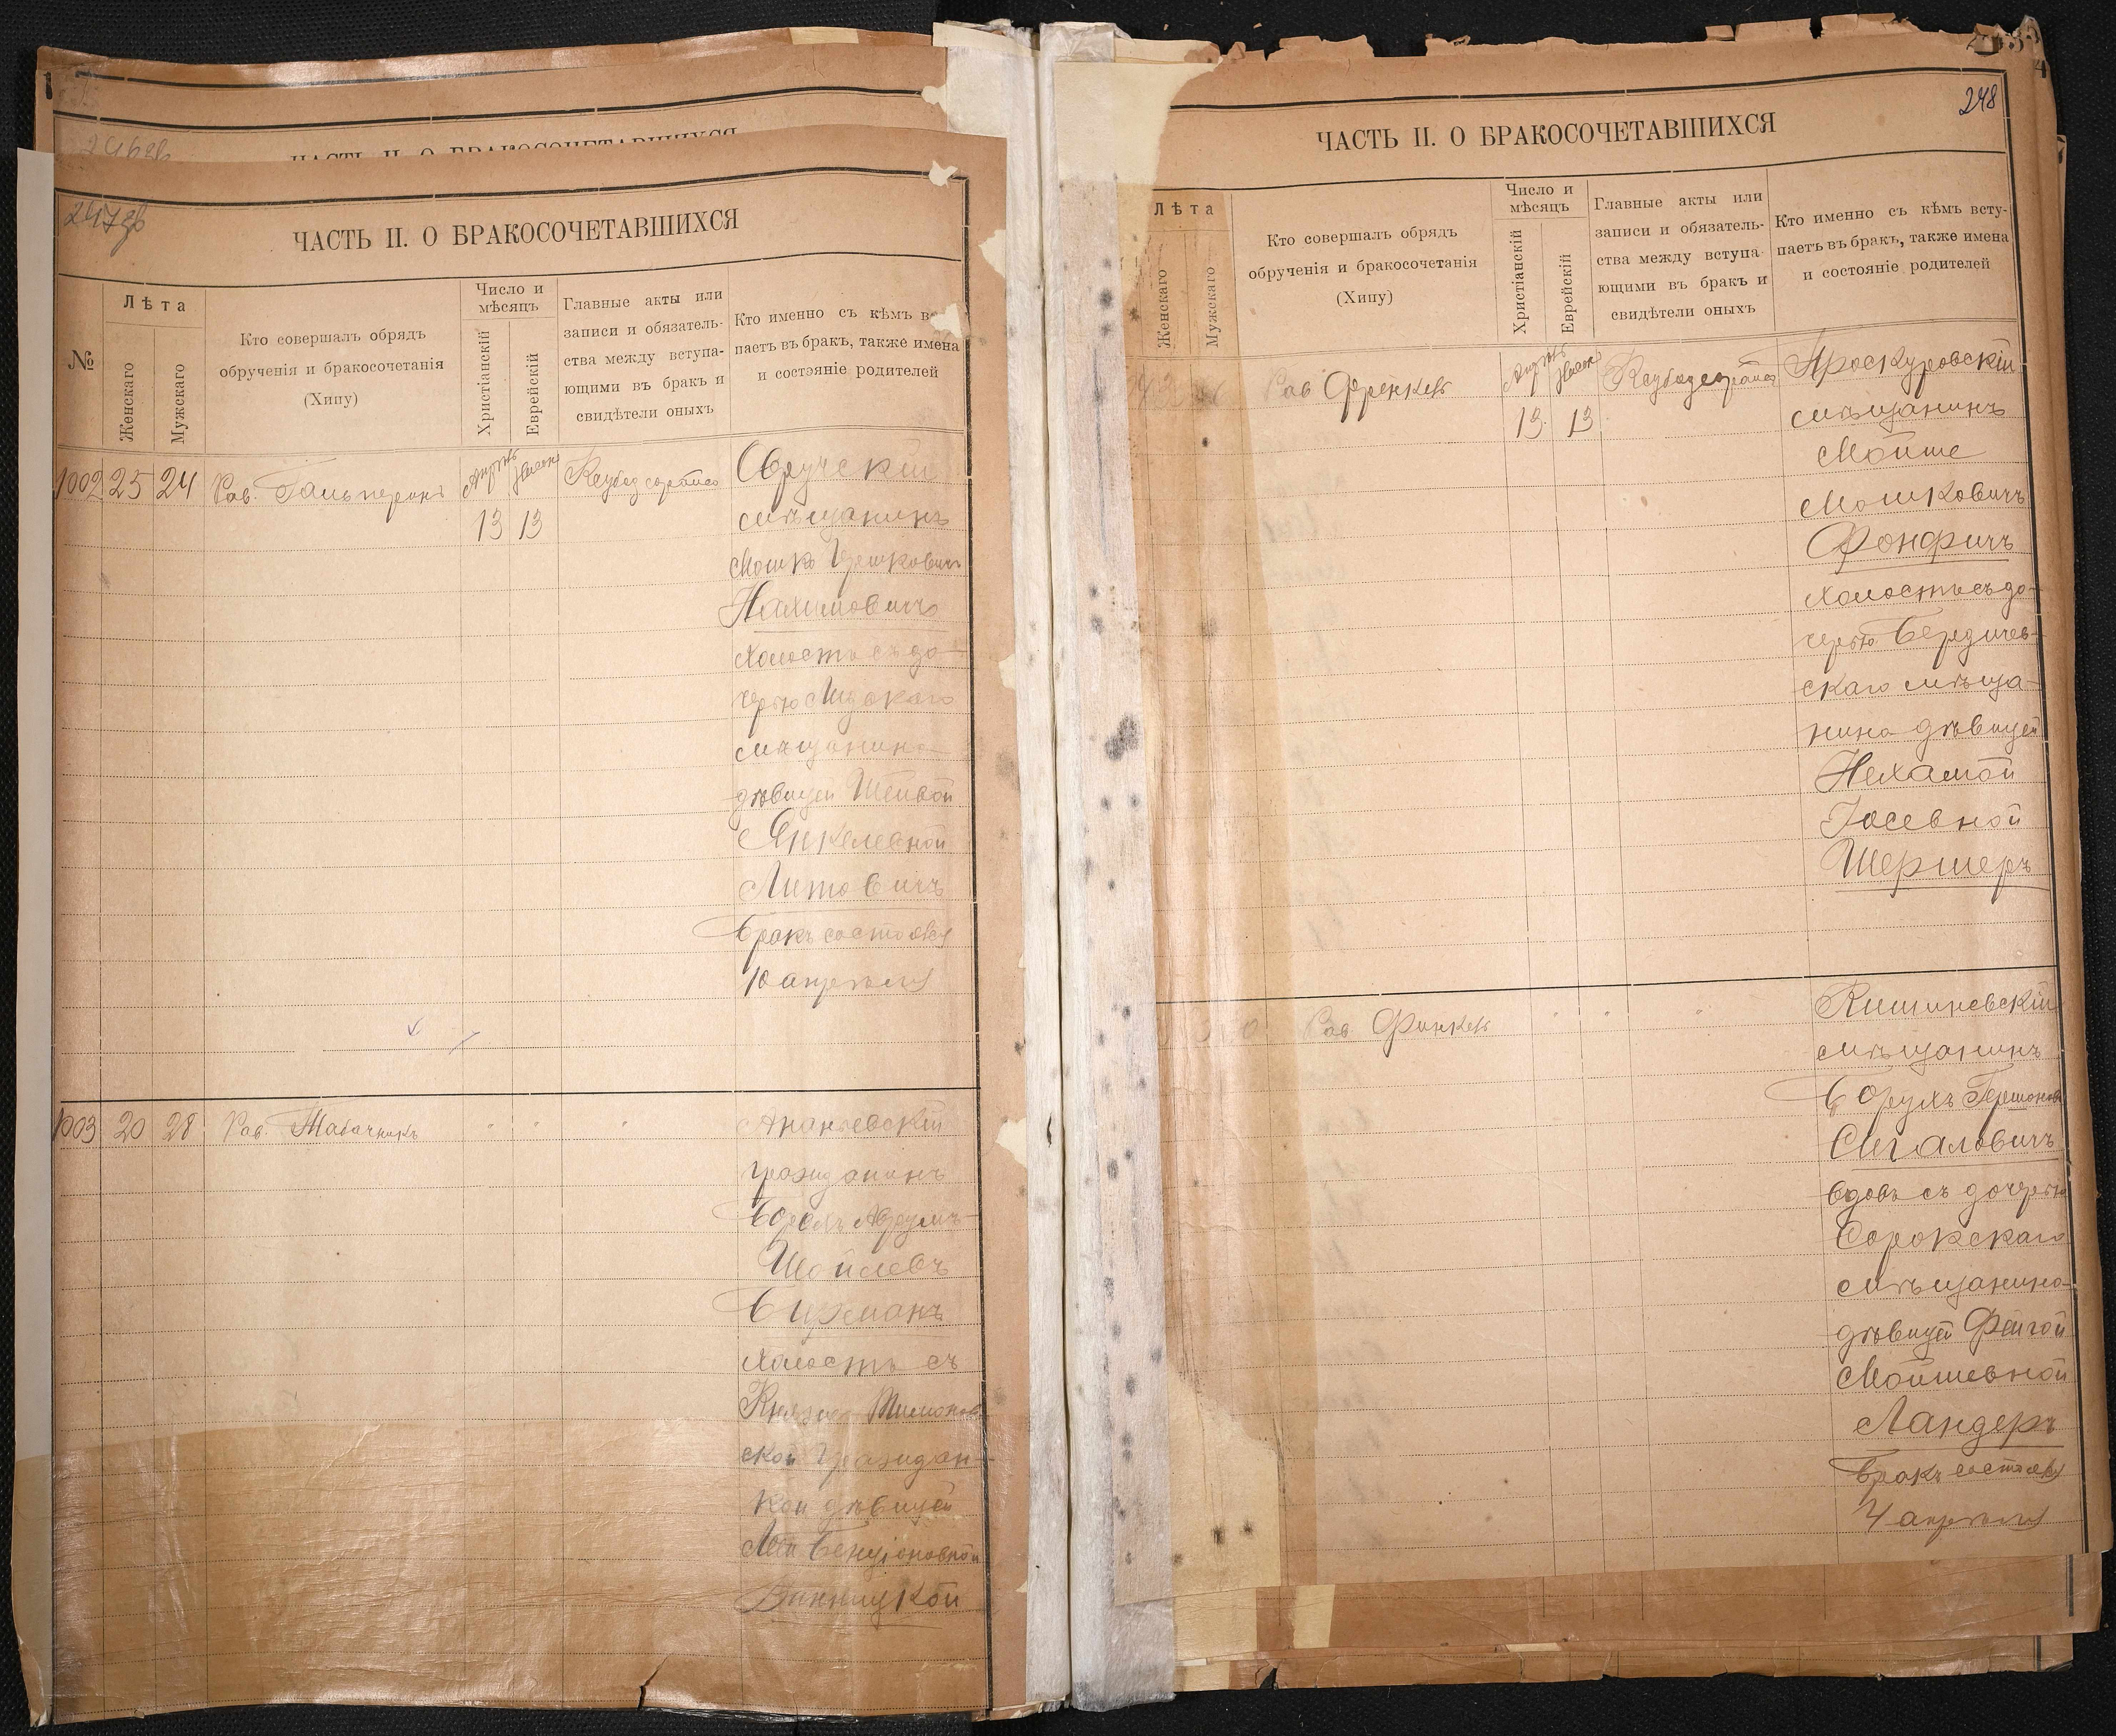 247об
ЧАСТЬ II. О БРАКОСОЧЕТАВШИХСЯ
№
Лѣта
Женскаго
Мужскаго
Кто совершалъ обрядъ
обрученія и бракосочетанія
(Хипу)
Число и
мѣсяцъ
Христіанскій
Еврейскій
Главные акты или
записи и обязатель-
ства между вступа-
ющими въ бракъ и
свидѣтели оныхъ
Кто именно съ кѣмъ всту-
паетъ въ бракъ, также имена
и состояніе родителей
1002 25 24 Рав. Гальперинъ
13 13
Овручскій
мѣщанинъ
Мошко Гершковичъ
Нахимовичъ
холостъ съ до-
черью
мѣщанина
дѣвицей Шейвой
Янкелевной
Литовичъ
бракъ состоялся
10 апрѣля
1003 20 28 Рав. Табачникъ
Ананьевскій
гражданинъ
Борухъ Аврумъ-
Шойлевъ
Бирманъ
холостъ съ
ской граждан-
кой дѣвицей
Леей Бенціоновной
Винницкой
248
ЧАСТЬ II. О БРАКОСОЧЕТАВШИХСЯ
Лѣта
Женскаго
Мужскаго
Кто совершалъ обрядъ
обрученія и бракосочетанія
(Хипу)
Число и
мѣсяцъ
Христіанскій
Еврейскій
Главные акты или
записи и обязатель-
ства между вступа-
ющими въ бракъ и
свидѣтели оныхъ
Кто именно съ кѣмъ всту-
паетъ въ бракъ, также имена
и состояніе родителей
Рав Френкель
13 13
Проскуровскій
мѣщанинъ
Мойше
Мошковичъ
Фонфичъ
холостъ съ до-
черью Бердичев-
скаго мѣща-
нина дѣвицей
Нехамой
Іосевной
Шершеръ
Рав. Финкель
Кишиневскій
мѣщанинъ
Борухъ Гершоновъ
Сигаловичъ
вдовъ съ дочерью
Сорокскаго
мѣщанина
дѣвицей Фейгой
Мойшевной
Ландеръ
бракъ состоялся
4 апрѣля